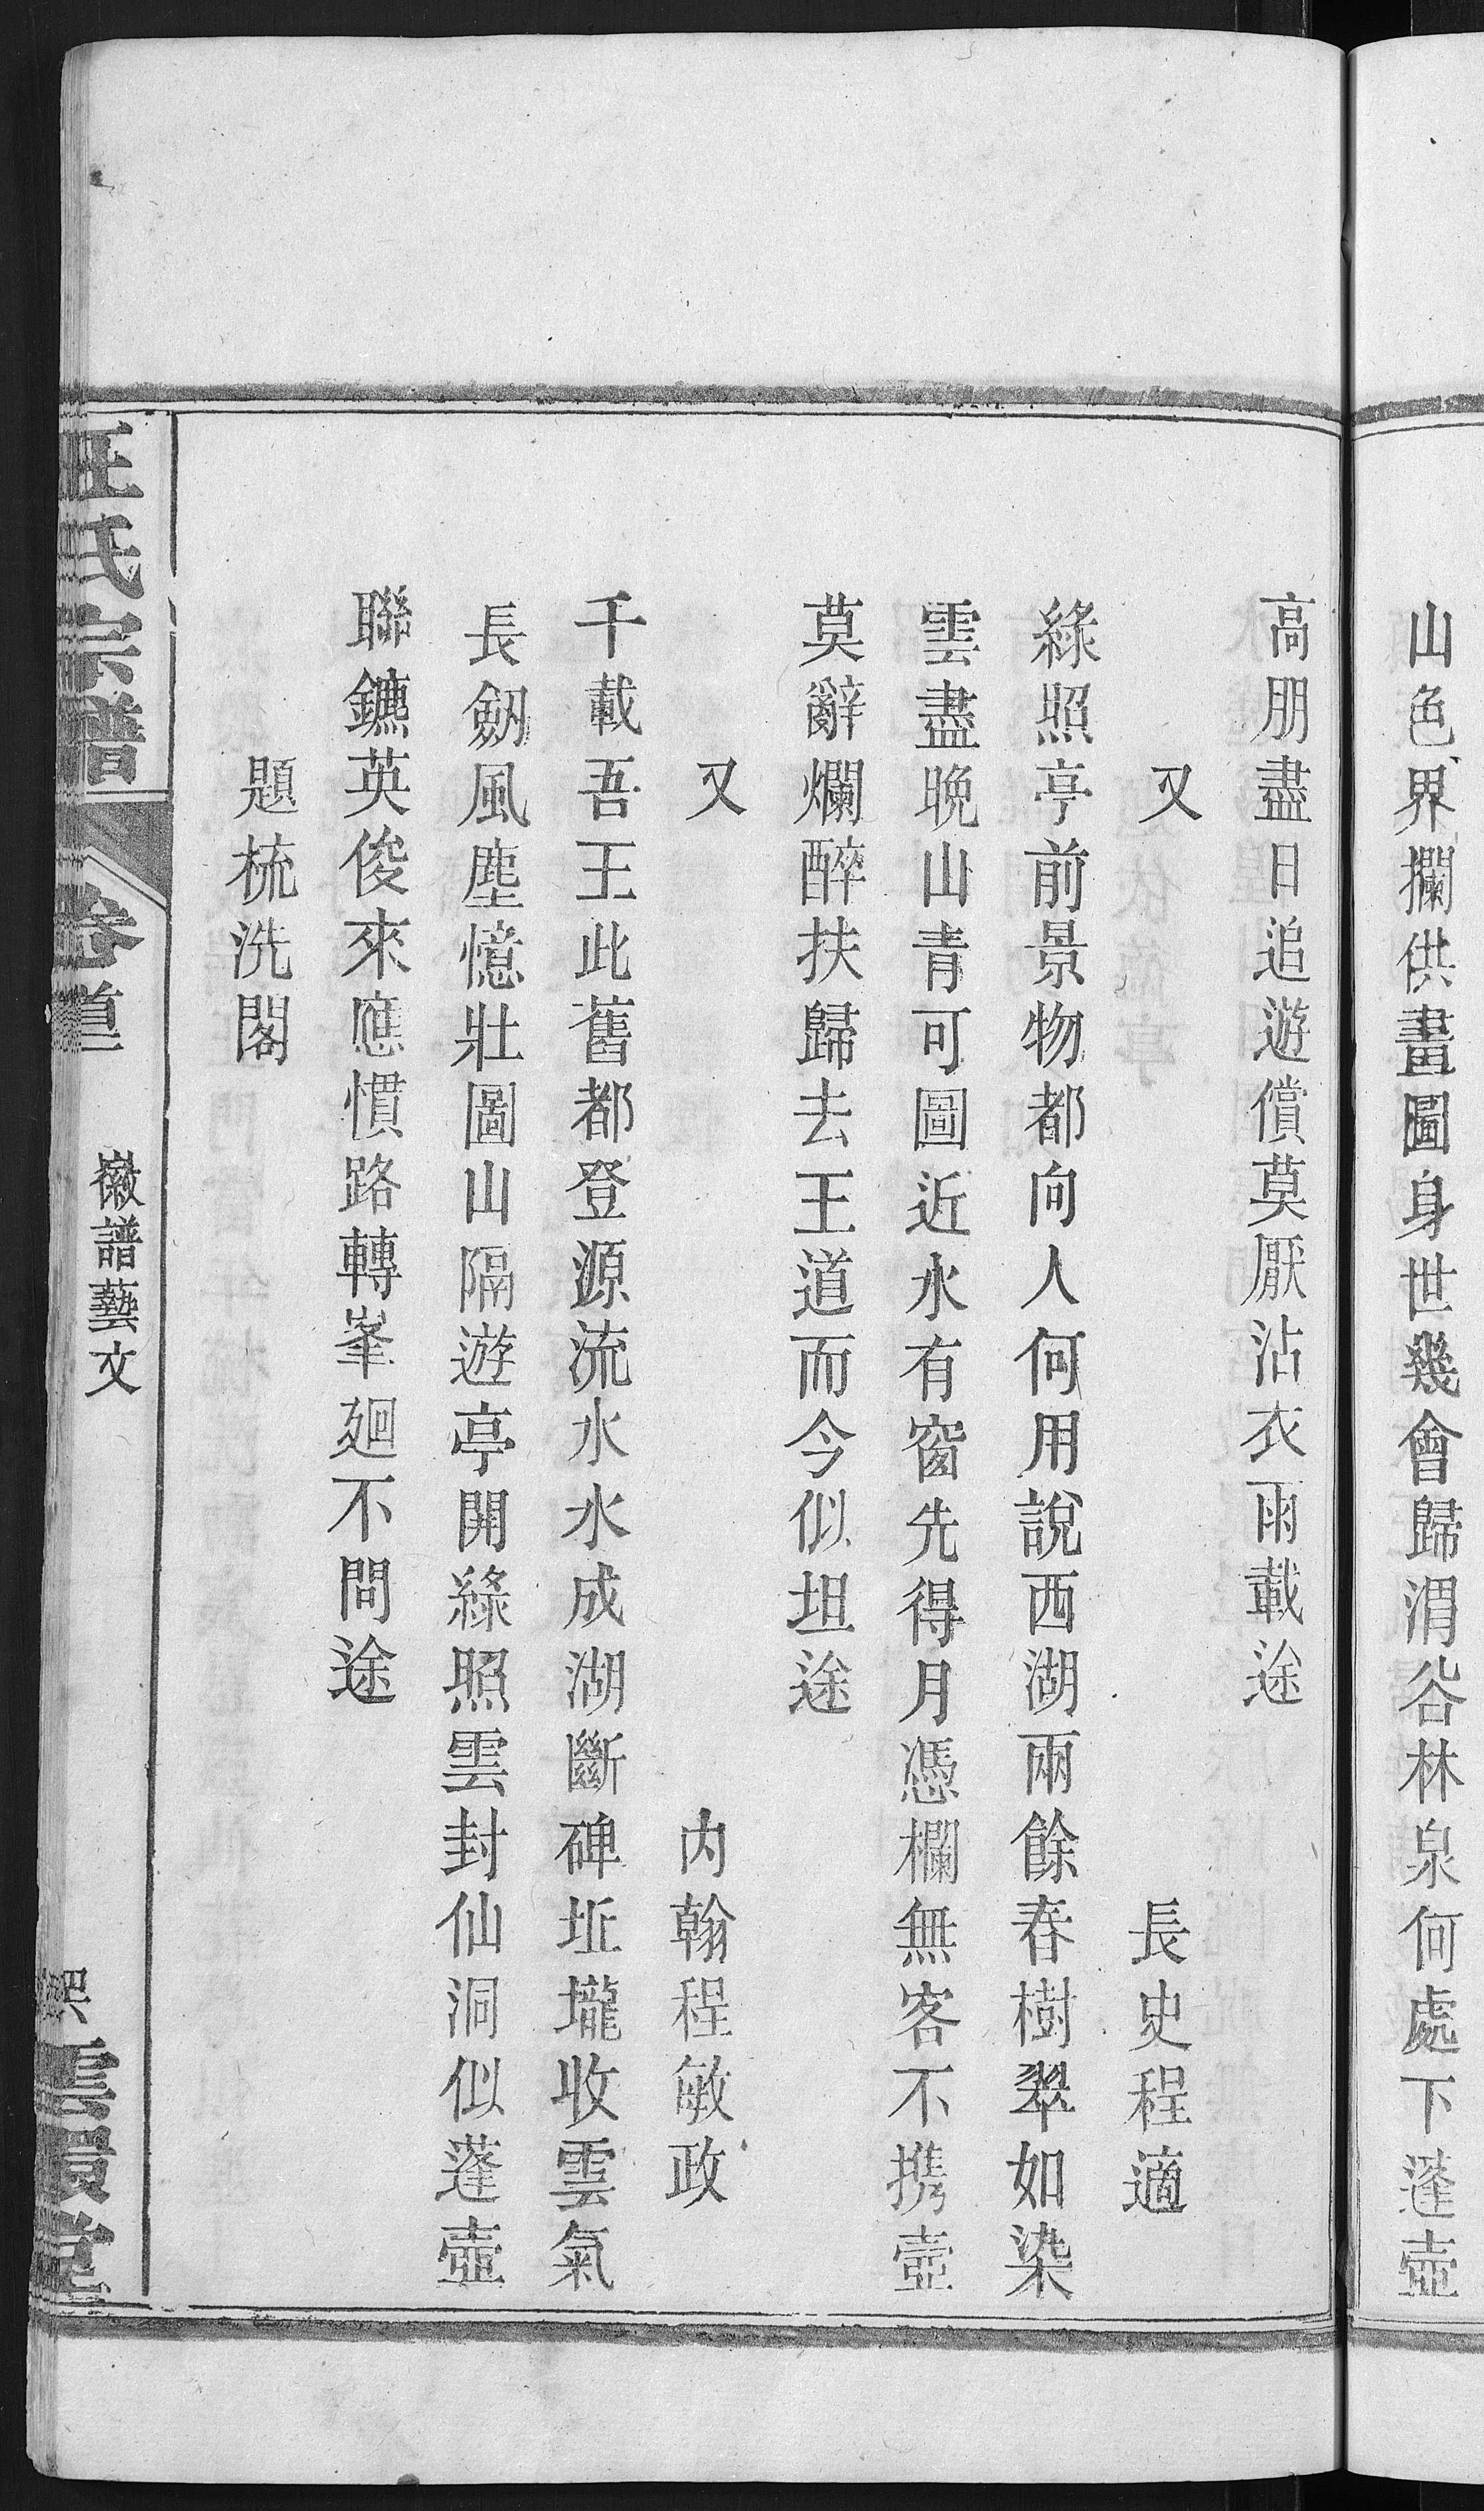 山色界攔供畫圖身世幾會歸渭谷林泉何處下蓬壺
高朋盡日追遊償莫厭沾衣雨載途
又　長史程適
綠照亭前景物都向人何用說西湖兩餘春樹翠如染
雲盡晚山青可圖近水有窗先得月憑欄無客不携壺
莫辭爛醉扶歸去王道而今似坦途
又　內翰程敏政
千載吾王此舊都登源流水水成湖斷碑坵壠收雲氣
長劒風塵憶壯圖山隔遊亭開綠照雲封仙洞似蓬壺
聯鑣英俊來應慣路轉峯廻不問途
題梳洗閣
汪氏宗譜
卷首
徽譜藝文
雲
堂